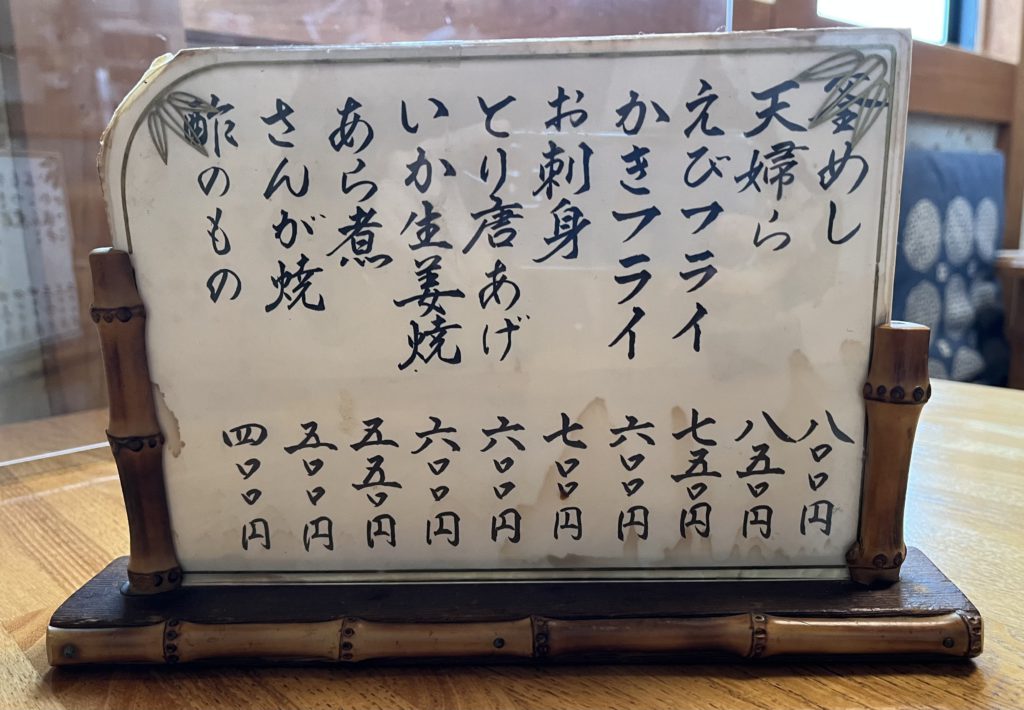 釜めし 八〇〇円
天婦ら 八五〇円
えびフライ 七五〇円
かきフライ 六〇〇円
お刺身 七〇〇円
とり唐あげ 六〇〇円
いか生姜焼 六〇〇円
あら煮 五五〇円
さんが焼 五〇〇円
酢のもの 四〇〇円